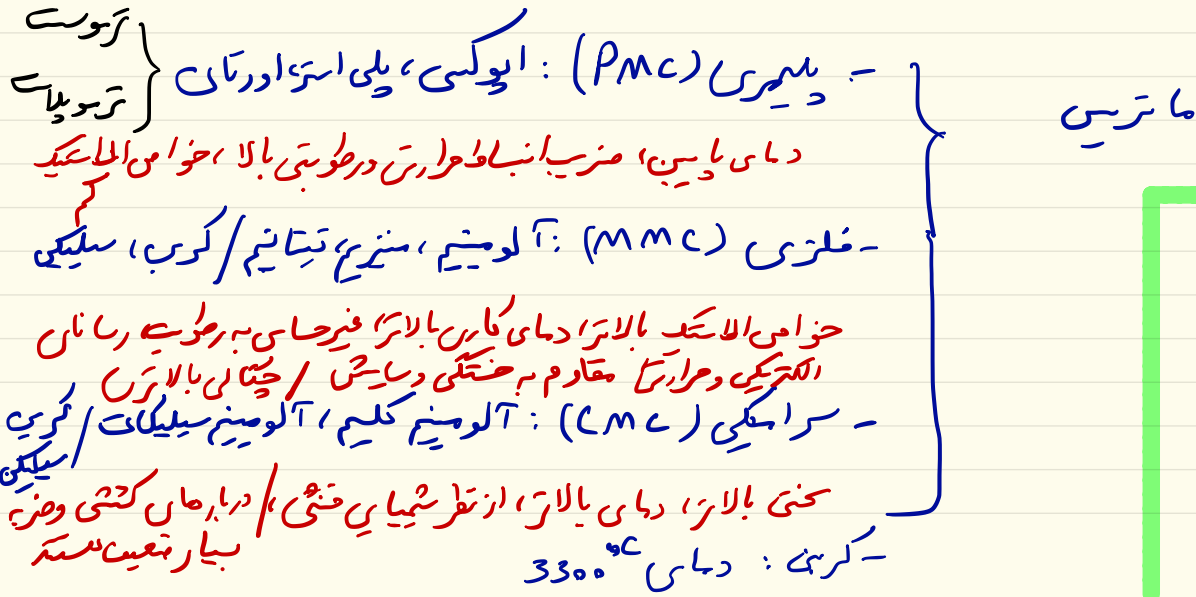 ماتریس
- پلیمری (PMC) : اپوکسی، پلی استر، اورتان
ترموست
ترموپلاست
دمای پایین، ضریب انبساط حرارتی و رطوبتی بالا، خواص الاستیک کم
- فلزی (MMC) : آلومینیم، منیزیم، تیتانیم / کربن، سیلیکن
خواص الاستیک بالاتر، دمای کاری بالاتر، غیرحساس به رطوبت، رسانای
الکتریکی و حرارتی، مقاوم به خستگی و سایش / چگالی بالاتری
- سرامیکی (CMC) : آلومینیم کلیم، آلومینیم سیلیکات / کربن
سیلیکن
سختی بالاتر، دمای بالاتر، از نظر شیمیایی خنثی / در بارهای کششی و ضربه
بسیار ضعیف هستند
- کربنی : دمای 3300 °C